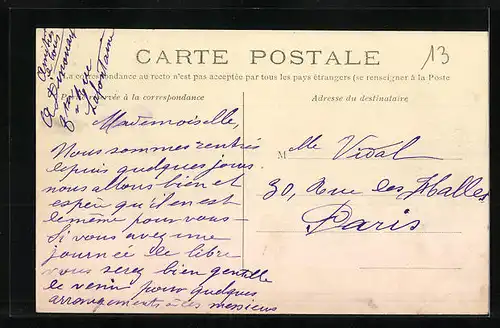 Amitiés
à tous
8 bis
rue
Lafontaine
13
CARTE POSTALE
La correspondance au recto n'est pas acceptée par tous les pays étrangers (se renseigner à la Poste
à la correspondance
Adresse du destinataire
Mademoiselle,
Nous sommes rentrés
depuis quelques jours
nous allons bien et
espère qu'il en est
de même pour vous -
Si vous avez une
journée de libre
vous serez bien gentille
de venir pour quelques
arrangements à ces messieurs
Melle Vidal
30, Rue des Halles
Paris